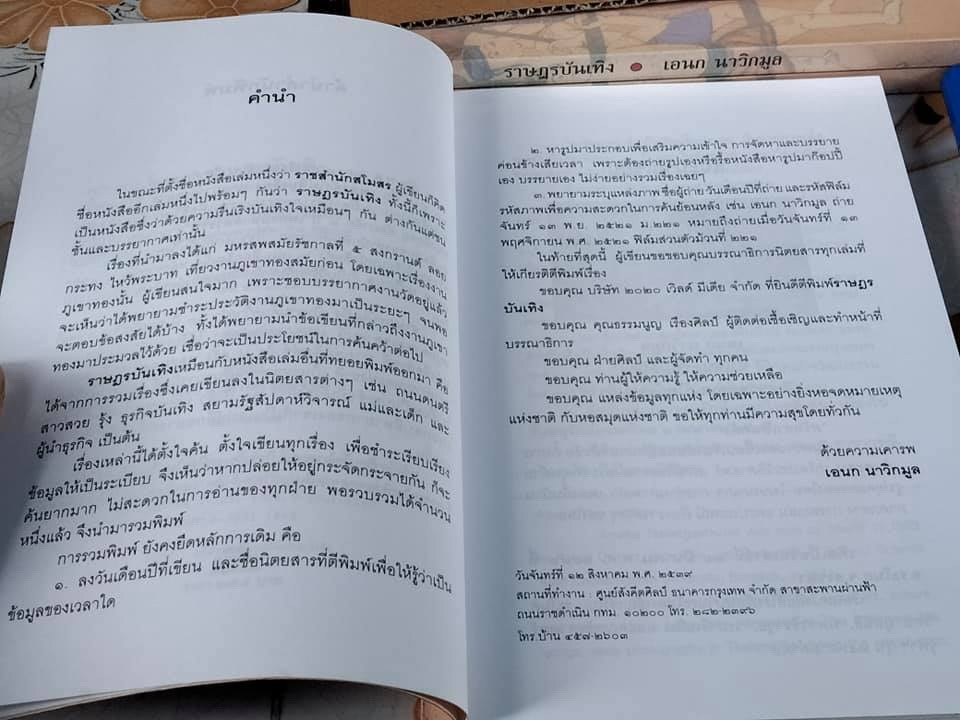 ราษฎรบันเทิง ● เอนก นาวิกมูล
คำนำ
ในขณะที่ตั้งชื่อหนังสือเล่มหนึ่งว่า ราชสำนักสโมสร ผู้เขียนก็คิด
ชื่อหนังสืออีกเล่มหนึ่งไปพร้อมๆ กันว่า ราษฎรบันเทิง ทั้งนี้ก็เพราะ
เป็นหนังสือซึ่งว่าด้วยความรื่นเริงบันเทิงใจเหมือนๆ กัน ต่างกันแต่ชน
ชั้นและบรรยากาศเท่านั้น
เรื่องที่นำมาลงได้แก่ มหรสพสมัยรัชกาลที่ ๕ สงกรานต์ ลอย
กระทง ไหว้พระบาท เที่ยวงานภูเขาทองสมัยก่อน โดยเฉพาะเรื่องงาน
ภูเขาทองนั้น ผู้เขียนสนใจมาก เพราะชอบบรรยากาศงานวัดอยู่แล้ว
จะเห็นว่าได้พยายามชำระประวัติงานภูเขาทองมาเป็นระยะๆ จนพอ
จะตอบข้อสงสัยได้บ้าง ทั้งได้พยายามนำข้อเขียนที่กล่าวถึงงานภูเขา
ทองมาประมวลไว้ด้วย เชื่อว่าจะเป็นประโยชน์ในการค้นคว้าต่อไป
ราษฎรบันเทิงเหมือนกับหนังสือเล่มอื่นที่ทยอยพิมพ์ออกมา คือ
ได้จากการรวมเรื่องซึ่งเคยเขียนลงในนิตยสารต่างๆ เช่น ถนนดนตรี
สาวสวย รุ้ง ธุรกิจบันเทิง สยามรัฐสัปดาห์วิจารณ์ แม่และเด็ก และ
ผู้นำธุรกิจ เป็นต้น
เรื่องเหล่านี้ได้ตั้งใจค้น ตั้งใจเขียนทุกเรื่อง เพื่อชำระเรียบเรียง
ข้อมูลให้เป็นระเบียบ จึงเห็นว่าหากปล่อยให้อยู่กระจัดกระจายกัน ก็จะ
ค้นยากมาก ไม่สะดวกในการอ่านของทุกฝ่าย พอรวบรวมได้จำนวน
หนึ่งแล้ว จึงนำมารวมพิมพ์
การรวมพิมพ์ ยังคงยึดหลักการเดิม คือ
๑. ลงวันเดือนปีที่เขียน และชื่อนิตยสารที่ตีพิมพ์เพื่อให้รู้ว่าเป็น
ข้อมูลของเวลาใด
๒. หารูปมาประกอบเพื่อเสริมความเข้าใจ การจัดหาและบรรยาย
ค่อนข้างเสียเวลา เพราะต้องถ่ายรูปเองหรือรื้อหนังสือหารูปมาก๊อปปี้
เอง บรรยายเอง ไม่ง่ายอย่างรวมเรื่องเฉยๆ
๓. พยายามระบุแหล่งภาพ ชื่อผู้ถ่าย วันเดือนปีที่ถ่าย และรหัสฟิล์ม
รหัสภาพเพื่อความสะดวกในการค้นย้อนหลัง เช่น เอนก นาวิกมูล ถ่าย
จันทร์ ๑๓ พ.ย. ๒๕๒๑ ม.๒๒๑ หมายถึงถ่ายเมื่อวันจันทร์ที่ ๑๓
พฤศจิกายน พ.ศ. ๒๕๒๑ ฟิล์มส่วนตัวม้วนที่ ๒๒๑
ในท้ายที่สุดนี้ ผู้เขียนขอขอบคุณบรรณาธิการนิตยสารทุกเล่มที่
ให้เกียรติตีพิมพ์เรื่อง
ขอบคุณ บริษัท ๒๐๒๐ เวิลด์ มีเดีย จำกัด ที่ยินดีตีพิมพ์ราษฎร
บันเทิง
ขอบคุณ คุณธรรมนูญ เรืองศิลป์ ผู้ติดต่อเชื้อเชิญและทำหน้าที่
บรรณาธิการ
ขอบคุณ ฝ่ายศิลป์ และผู้จัดทำ ทุกคน
ขอบคุณ ท่านผู้ให้ความรู้ ให้ความช่วยเหลือ
ขอบคุณ แหล่งข้อมูลทุกแห่ง โดยเฉพาะอย่างยิ่งหอจดหมายเหตุ
แห่งชาติ กับหอสมุดแห่งชาติ ขอให้ทุกท่านมีความสุขโดยทั่วกัน
ด้วยความเคารพ
เอนก นาวิกมูล
วันจันทร์ที่ ๑๒ สิงหาคม พ.ศ. ๒๕๓๙
สถานที่ทำงาน : ศูนย์สังคีตศิลป์ ธนาคารกรุงเทพ จำกัด สาขาสะพานผ่านฟ้า
ถนนราชดำเนิน กทม. ๑๐๒๐๐ โทร. ๒๘๒-๒๓๙๖
โทร.บ้าน ๔๕๗-๒๖๐๓